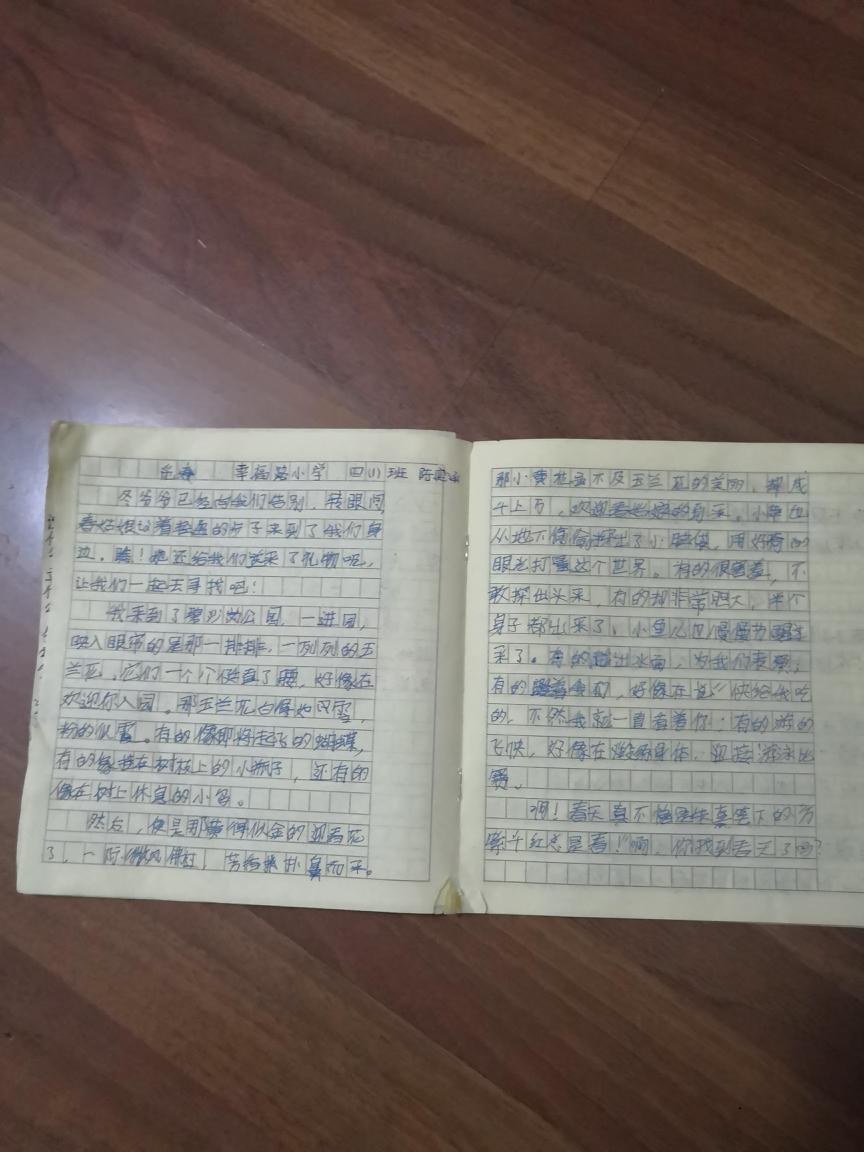 幸福路小学 四(1)班
冬爷爷已经向我们告别,转眼间
春姑娘迈着轻盈的步子来到了我们身
边。瞧!她还给我们带来了礼物呢,
让我们一起去寻找吧!
我来到了公园,一进园,
映入眼帘的是那一排排,一列列的玉
兰花。它们一个个挺直了腰,好像在
欢迎你入园。那玉兰花白得如雪,
粉的似霞。有的像即将起飞的蝴蝶,
有的像挂在树枝上的小瓶子,还有的
像在树上休息的小鸟。
然后,便是那黄得似金的迎春花
了,一阵微风拂过,芳香扑鼻而来。
那小黄花虽不及玉兰花的美丽,却成
千上万,欢迎着姑娘的到来。小草也
从地下偷偷探出了小脑袋,用好奇的
眼光打量这个世界。有的很害羞,不
敢探出头来,有的却非常胆大,半个
身子都出来了。小鱼儿也慢慢苏醒过
来了。有的跳出水面,为我们表演,
有的,好像在说“快给我吃
的,不然我就一直看着你;有的游的
飞快,好像在锻炼身体,迎接游泳比
赛。
啊!春天真不愧是“万
紫千红总是春!”啊,你找到春天了吗?